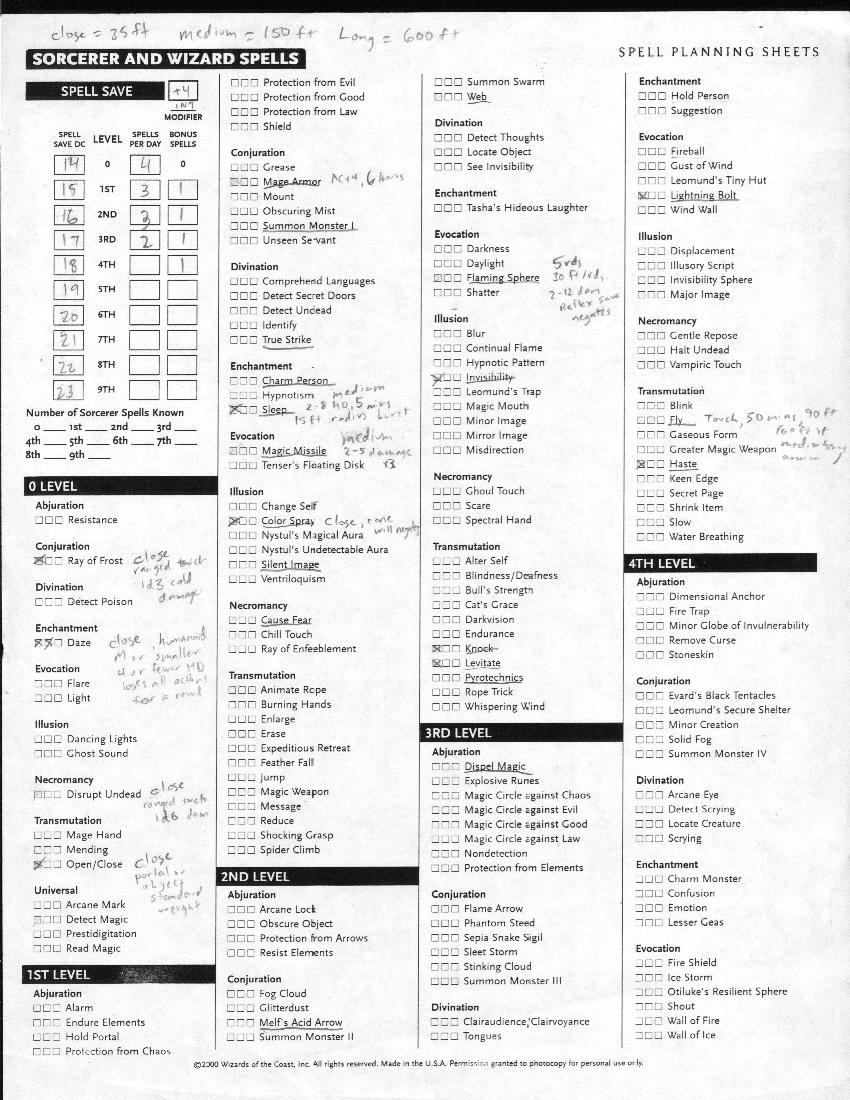 close = 35 ft medium = 150 ft Long = 600 ft
SORCERER AND WIZARD SPELLS
SPELL PLANNING SHEETS
SPELL SAVE +4
INT
MODIFIER
SPELL SAVE DC LEVEL SPELLS PER DAY BONUS SPELLS
14 0 4 0
15 1ST 3 1
16 2ND 1
17 3RD 2 1
18 4TH 1
19 5TH
20 6TH
21 7TH
22 8TH
23 9TH
Number of Sorcerer Spells Known
0 ____ 1st ____ 2nd ____ 3rd ____
4th ____ 5th ____ 6th ____ 7th ____
8th ____ 9th ____
0 LEVEL
Abjuration
Resistance
Conjuration
Ray of Frost close
ranged touch
1d3 cold
damage
Divination
Detect Poison
Enchantment
Daze close, humanoid
M or smaller
4 or fewer HD
loses all actions
for a round
Evocation
Flare
Light
Illusion
Dancing Lights
Ghost Sound
Necromancy
Disrupt Undead close
ranged touch
1d6 dam
Transmutation
Mage Hand
Mending
Open/Close close
portal or
object
standard
weight
Universal
Arcane Mark
Detect Magic
Prestidigitation
Read Magic
1ST LEVEL
Abjuration
Alarm
Endure Elements
Hold Portal
Protection from Chaos
Protection from Evil
Protection from Good
Protection from Law
Shield
Conjuration
Grease
Mage Armor AC+4, 6 hours
Mount
Obscuring Mist
Summon Monster I
Unseen Servant
Divination
Comprehend Languages
Detect Secret Doors
Detect Undead
Identify
True Strike
Enchantment
Charm Person
Hypnotism medium
Sleep 2-8 HD, 5 mins
15 ft radius burst
Evocation medium
Magic Missile 2-5 damage
Tenser's Floating Disk x3
Illusion
Change Self
Color Spray Close, cone
Nystul's Magical Aura will negates
Nystul's Undetectable Aura
Silent Image
Ventriloquism
Necromancy
Cause Fear
Chill Touch
Ray of Enfeeblement
Transmutation
Animate Rope
Burning Hands
Enlarge
Erase
Expeditious Retreat
Feather Fall
Jump
Magic Weapon
Message
Reduce
Shocking Grasp
Spider Climb
2ND LEVEL
Abjuration
Arcane Lock
Obscure Object
Protection from Arrows
Resist Elements
Conjuration
Fog Cloud
Glitterdust
Melf's Acid Arrow
Summon Monster II
Summon Swarm
Web
Divination
Detect Thoughts
Locate Object
See Invisibility
Enchantment
Tasha's Hideous Laughter
Evocation
Darkness
Daylight 5 rds
Flaming Sphere 30 ft/rd,
Shatter 2-12 dam
Reflex save
negates
Illusion
Blur
Continual Flame
Hypnotic Pattern
Invisibility
Leomund's Trap
Magic Mouth
Minor Image
Mirror Image
Misdirection
Necromancy
Ghoul Touch
Scare
Spectral Hand
Transmutation
Alter Self
Blindness/Deafness
Bull's Strength
Cat's Grace
Darkvision
Endurance
Knock
Levitate
Pyrotechnics
Rope Trick
Whispering Wind
3RD LEVEL
Abjuration
Dispel Magic
Explosive Runes
Magic Circle against Chaos
Magic Circle against Evil
Magic Circle against Good
Magic Circle against Law
Nondetection
Protection from Elements
Conjuration
Flame Arrow
Phantom Steed
Sepia Snake Sigil
Sleet Storm
Stinking Cloud
Summon Monster III
Divination
Clairaudience/Clairvoyance
Tongues
Enchantment
Hold Person
Suggestion
Evocation
Fireball
Gust of Wind
Leomund's Tiny Hut
Lightning Bolt
Wind Wall
Illusion
Displacement
Illusory Script
Invisibility Sphere
Major Image
Necromancy
Gentle Repose
Halt Undead
Vampiric Touch
Transmutation
Blink
Fly Touch, 50 mins, 90 ft
Gaseous Form
Greater Magic Weapon
armor
Haste
Keen Edge
Secret Page
Shrink Item
Slow
Water Breathing
4TH LEVEL
Abjuration
Dimensional Anchor
Fire Trap
Minor Globe of Invulnerability
Remove Curse
Stoneskin
Conjuration
Evard's Black Tentacles
Leomund's Secure Shelter
Minor Creation
Solid Fog
Summon Monster IV
Divination
Arcane Eye
Detect Scrying
Locate Creature
Scrying
Enchantment
Charm Monster
Confusion
Emotion
Lesser Geas
Evocation
Fire Shield
Ice Storm
Otiluke's Resilient Sphere
Shout
Wall of Fire
Wall of Ice
©2000 Wizards of the Coast, Inc. All rights reserved. Made in the U.S.A. Permission granted to photocopy for personal use only.